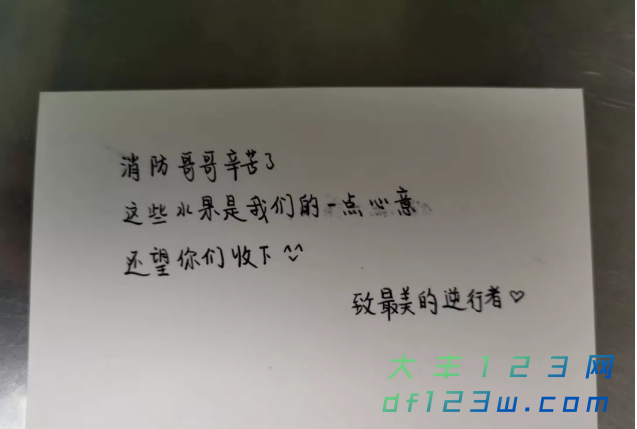 消防哥哥辛苦了
这些水果是我们的一点心意
还望你们收下^^
致最美的逆行者♡
大丰123网
df123w.com